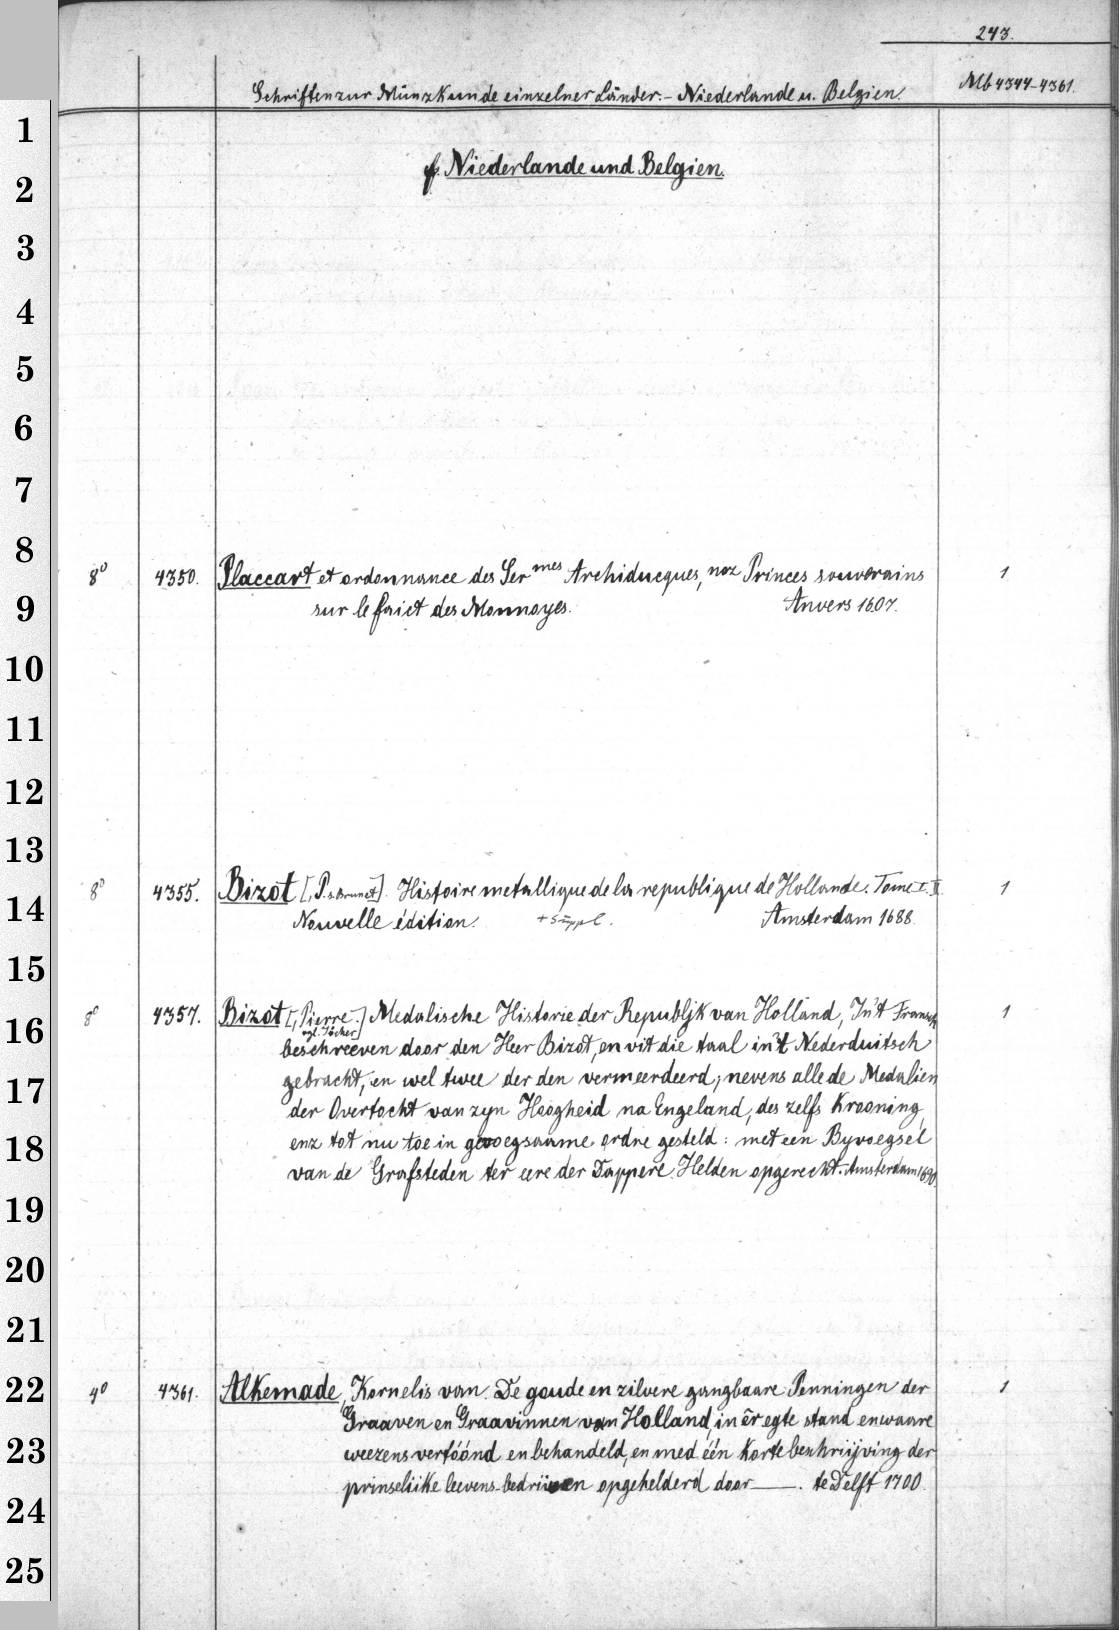 243.
Schriften zur Münzkunde einzelner Länder. - Niederlande u. Belgien.
Mb 4344-4361.
f. Niederlande und Belgien.
8⁰ 4350. Placcart et ordonnance des Ser mes Archiducques, noz Princes souverains 1
sur le faict des Monnoyes. Anvers 1607.
8⁰ 4355. Bizot [, P. s. Brunet]. Histoire metallique de la republique de Hollande. Tome I. II 1
Nouvelle édition. + Suppl. Amsterdam 1688.
8⁰ 4357. Bizot [, Pierre.] Medalische Historie der Republjk van Holland, In't Fransch 1
vgl. Jöcher
beschreeven door den Heer Bizot, en vit die taal in't Nederduitsch
gebracht, en wel twee der den vermeerdeerd, nevens alle de Medalien
der Overtocht van zyn Hoogheid na Engeland, des zelfs Krooning,
enz tot nu toe in gevoegsaame ordre gesteld: met een Byvoegsel
van de Grafsteden ter eere der Dappere Helden opgerecht. Amsterdam 1690.
4⁰ 4361. Alkemade, Kornelis van. De goude en zilvere gangbaare Penningen der 1
Graaven en Graavinnen van Holland, in êr egte stand en waare
weezens vertóónd en behandeld, en med één korte beschrijving der
prinselijke leevens-bedrijven opgehelderd door ——. te Delft 1700.
1
2
3
4
5
6
7
8
9
10
11
12
13
14
15
16
17
18
19
20
21
22
23
24
25